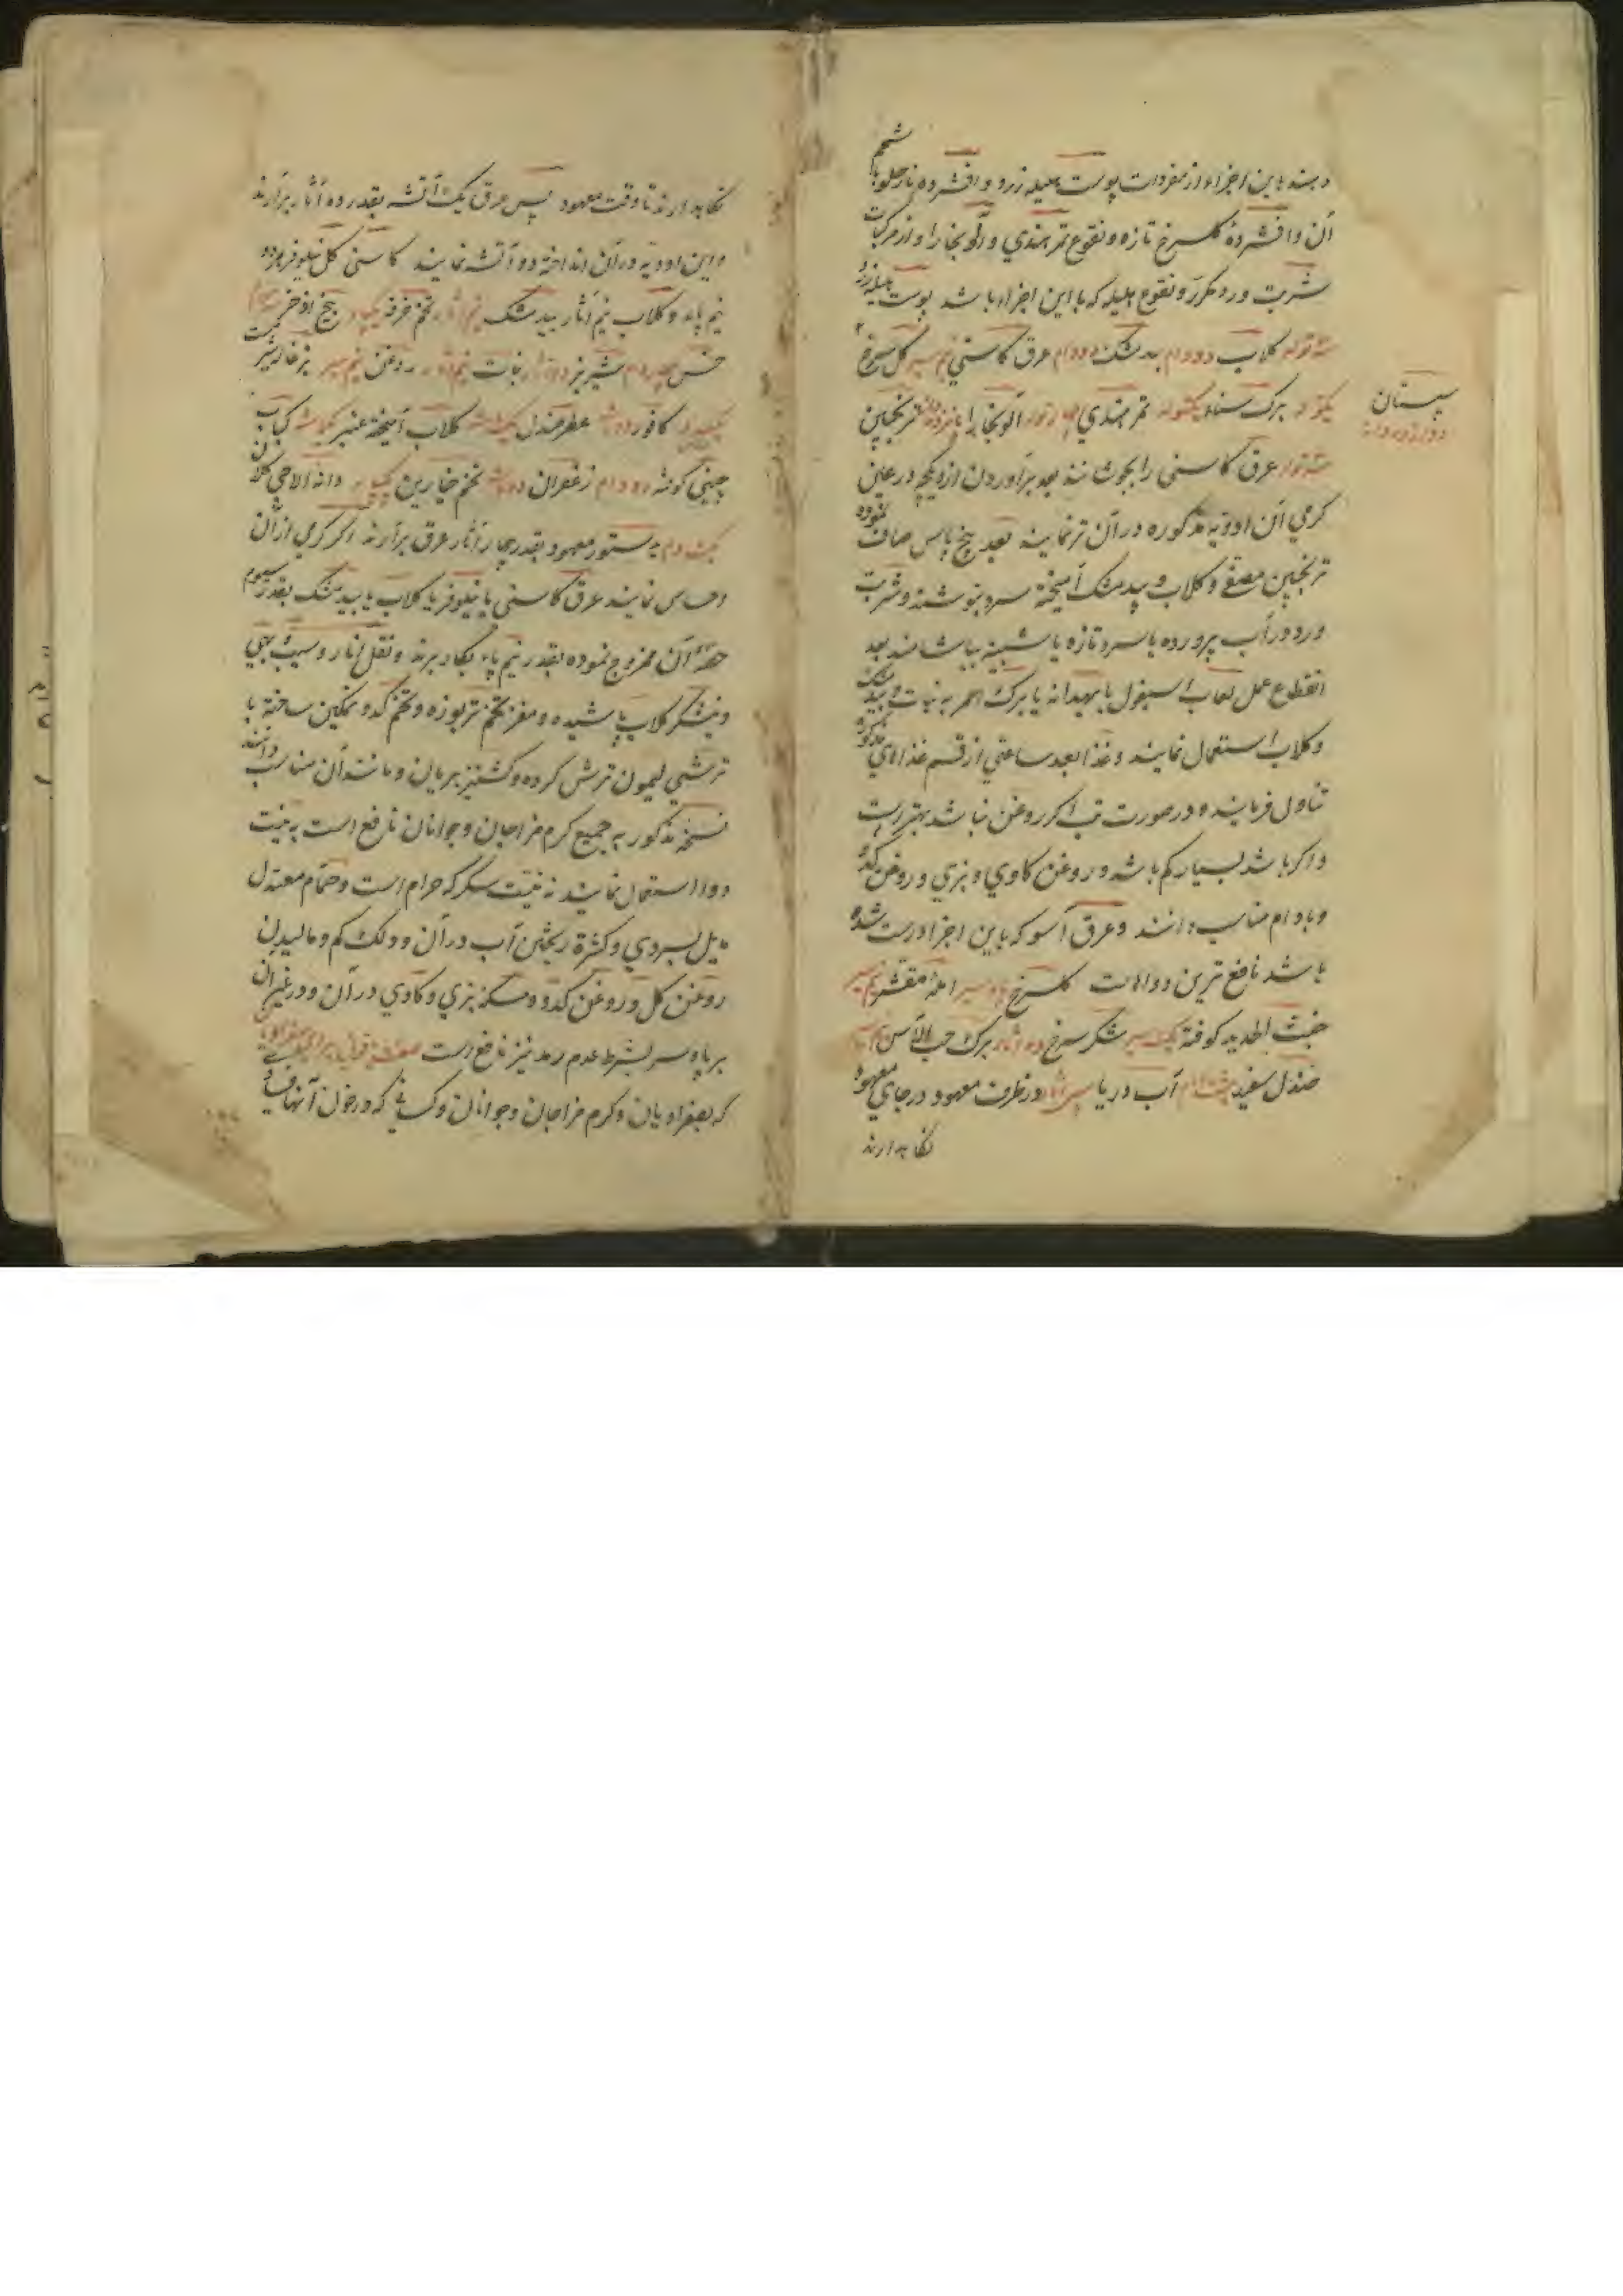 دهند باین اجزاء از مفردات پوست هلیله زرد و افشرده نار حلو با شحم
آن و افشردهٔ گلسرخ تازه و نقوع تمر هندي و آلو بخارا و از مرکبات
شربت ورد مکرر و نقوع هلیله که با این اجزاء باشد پوست هلیله زرد
سه توله کلاب دو دام بیدمشک دو دام عرق کاسني نیم سیر کل سرخ
یکتوله برک سناء یکتوله تمر هندي توله آلو بخارا پانزده دانه ترنجبین
سپستان
دوازده دانه
سه توله عرق کاسني را بجوشانند بعد برآوردن از دیکچه در عین
کرمي آن ادویه مذکوره در آن تر نمایند بعد پنج پاس صاف نموده
ترنجبین مصفی و کلاب و بیدمشک آمیخته سرد بنوشند و شربت
ورد در آب پرورده یا سرد تازه یا شبینه بیاشامند بعد
انقطاع عمل لعاب اسبغول یا بهیدانه یا برک احمر به نبات و بیدمشک
و کلاب استعمال نمایند و غذا بعد ساعتي از قسم غذاهاي مذکوره
تناول فرمایند و در صورت تب اکر روغن نباشد بهتر است
و اکر باشد بسیار کم باشد و روغن کاوي و بزي و روغن کدو
و بادام مناسب دانند و عرق آسو که باین اجزا درست شده
باشد نافع ترین دواهاست کلسرخ سیر املهٔ مقشر نیم سیر
خبث الحدید کوفته یک سیر شکر سرخ ده آثار برک حب الآس
صندل سفید آب دریا سي آثار در ظرف معهود در جاي معهود
نکاه دارند
نکاه دارند تا وقت معهود پس عرق یک آتشه بقدر ده آثار برآرند
و این ادویه در آن انداخته دو آتشه نمایند کاسني کل نیلوفر
نیم پاء و کلاب نیم آثار بیدمشک نیم آثار تخم خرفه بیخ اذخر
خس شیر بز نبات روغن نیم سیر
کافور دو ماشه عطر صندل یک ماشه کلاب آمیخته عنبر یکماشه کباب
چیني کوفته دو دام زعفران دو ماشه تخم خیارین دانه الاچي
یک دام بدستور معهود بقدر چهار آثار عرق برآرند اکر کرمي از آن
احساس نمایند عرق کاسني یا نیلوفر یا کلاب یا بیدمشک بقدر سیوم
حصهٔ آن ممزوج نموده بقدر نیم پاء بکار برند و نقل انار و سیب و بهي
و نیشکر کلاب پاشیده و مغز تخم تربوزه و تخم کدو نمکین ساخته با
ترشي لیمون ترش کرده و کشنیز بریان و مانند آن مناسب دانند
نسخه مذکور به جمیع کرم مزاجان و جوانان نافع است به نیت
دوا استعمال نمایند نه نیت سکر که حرام است و حمام معتدل
مایل بسردي و کثرة ریختن آب در آن و دلک کم و مالیدن
روغن کل و روغن کدو و مسکه بزي و کاوي در آن و در غیر آن
بر پا و سر بشرط عدم رمد نیز نافع است
که بصفراویان و کرم مزاجان و جوانان و کساني که در خون آنها